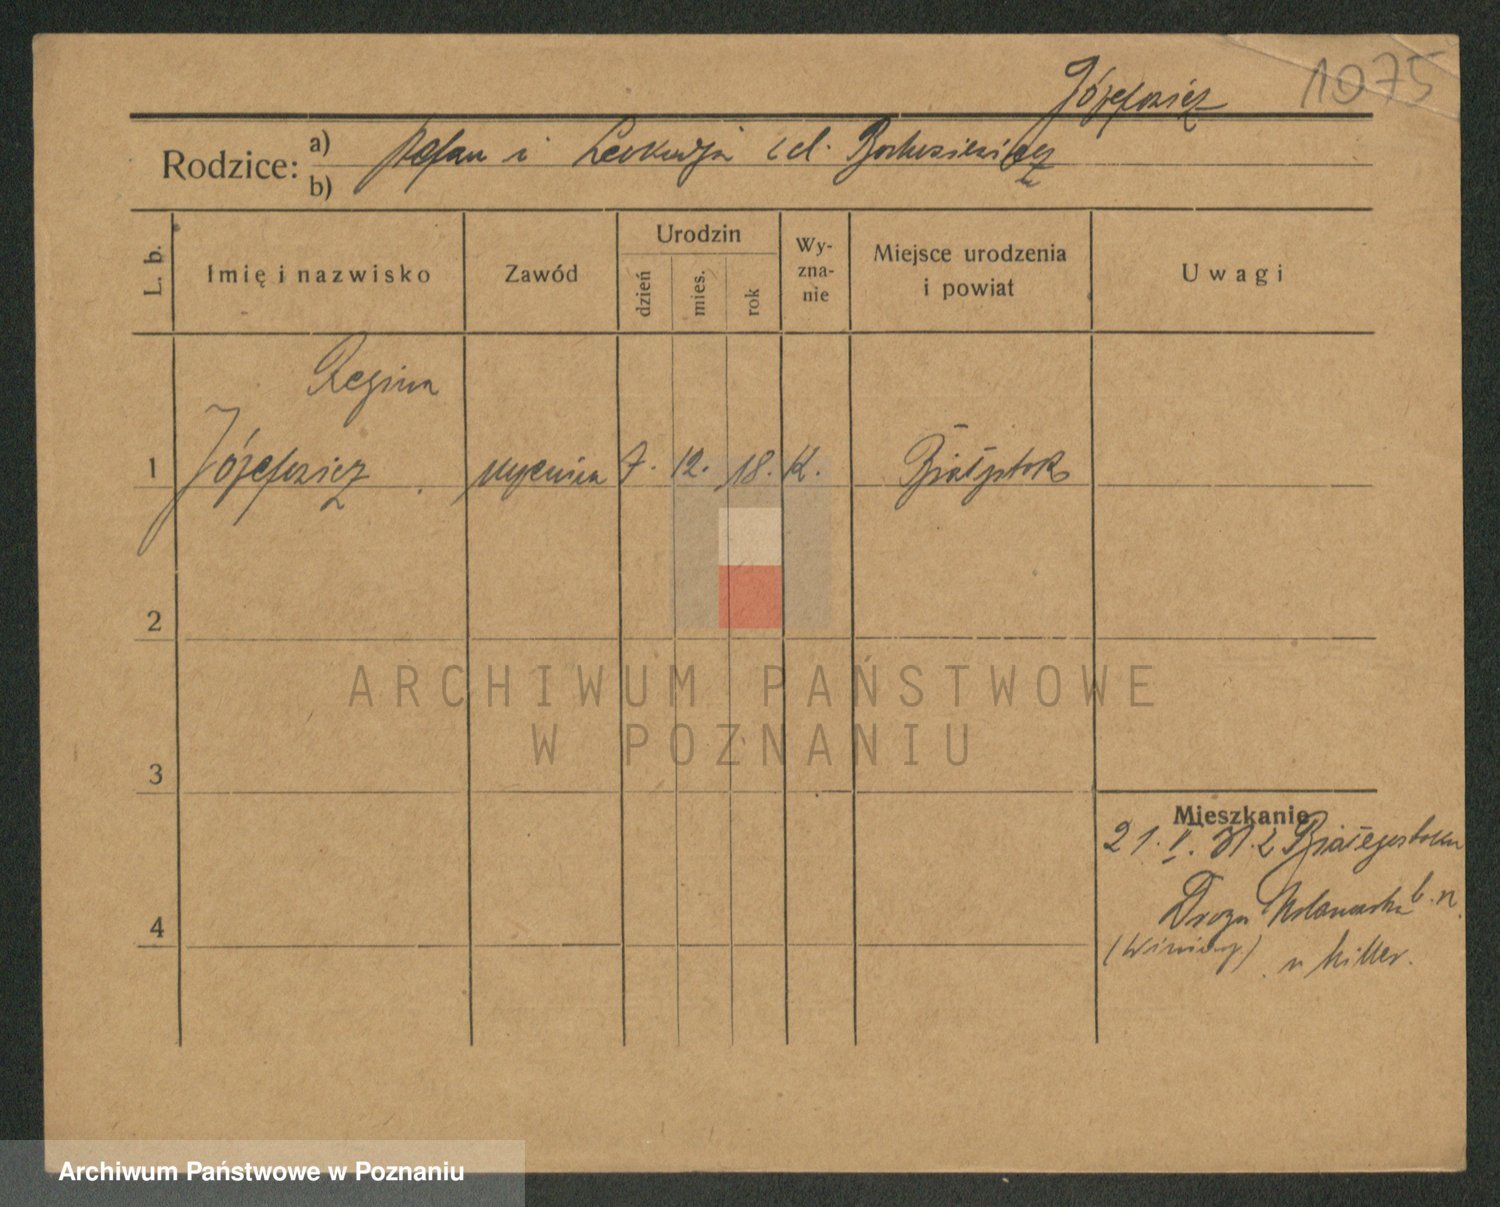 1075
Józefowicz
Rodzice: a) Stefan i Leokadja cd.
b)
L. b. Imię i nazwisko Zawód Urodzin dzień mies. rok Wyzna-nie Miejsce urodzenia i powiat Uwagi
Regina
1 Józefowicz uczenica 7. 12. 18. k. Białystok
2
ARCHIWUM PAŃSTWOWE
W POZNANIU
3
Mieszkanie
21. V. 31. z Białegostoku
Droga b. n.
4
(Winiary) u Miller.
Archiwum Państwowe w Poznaniu